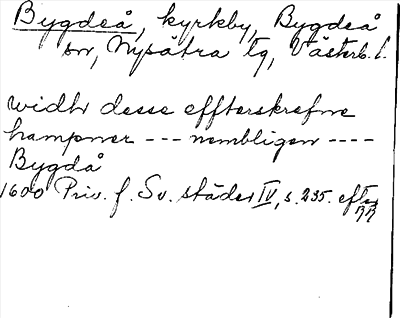 Bygdeå, kyrkby, Bygdeå
sn, Nysätra tg, Västerb. l.
widh desse effterskrefne
hampner --- nembligen ----
Bygdå
1600 Priv. f. Sv. städer IV, s. 235. efter